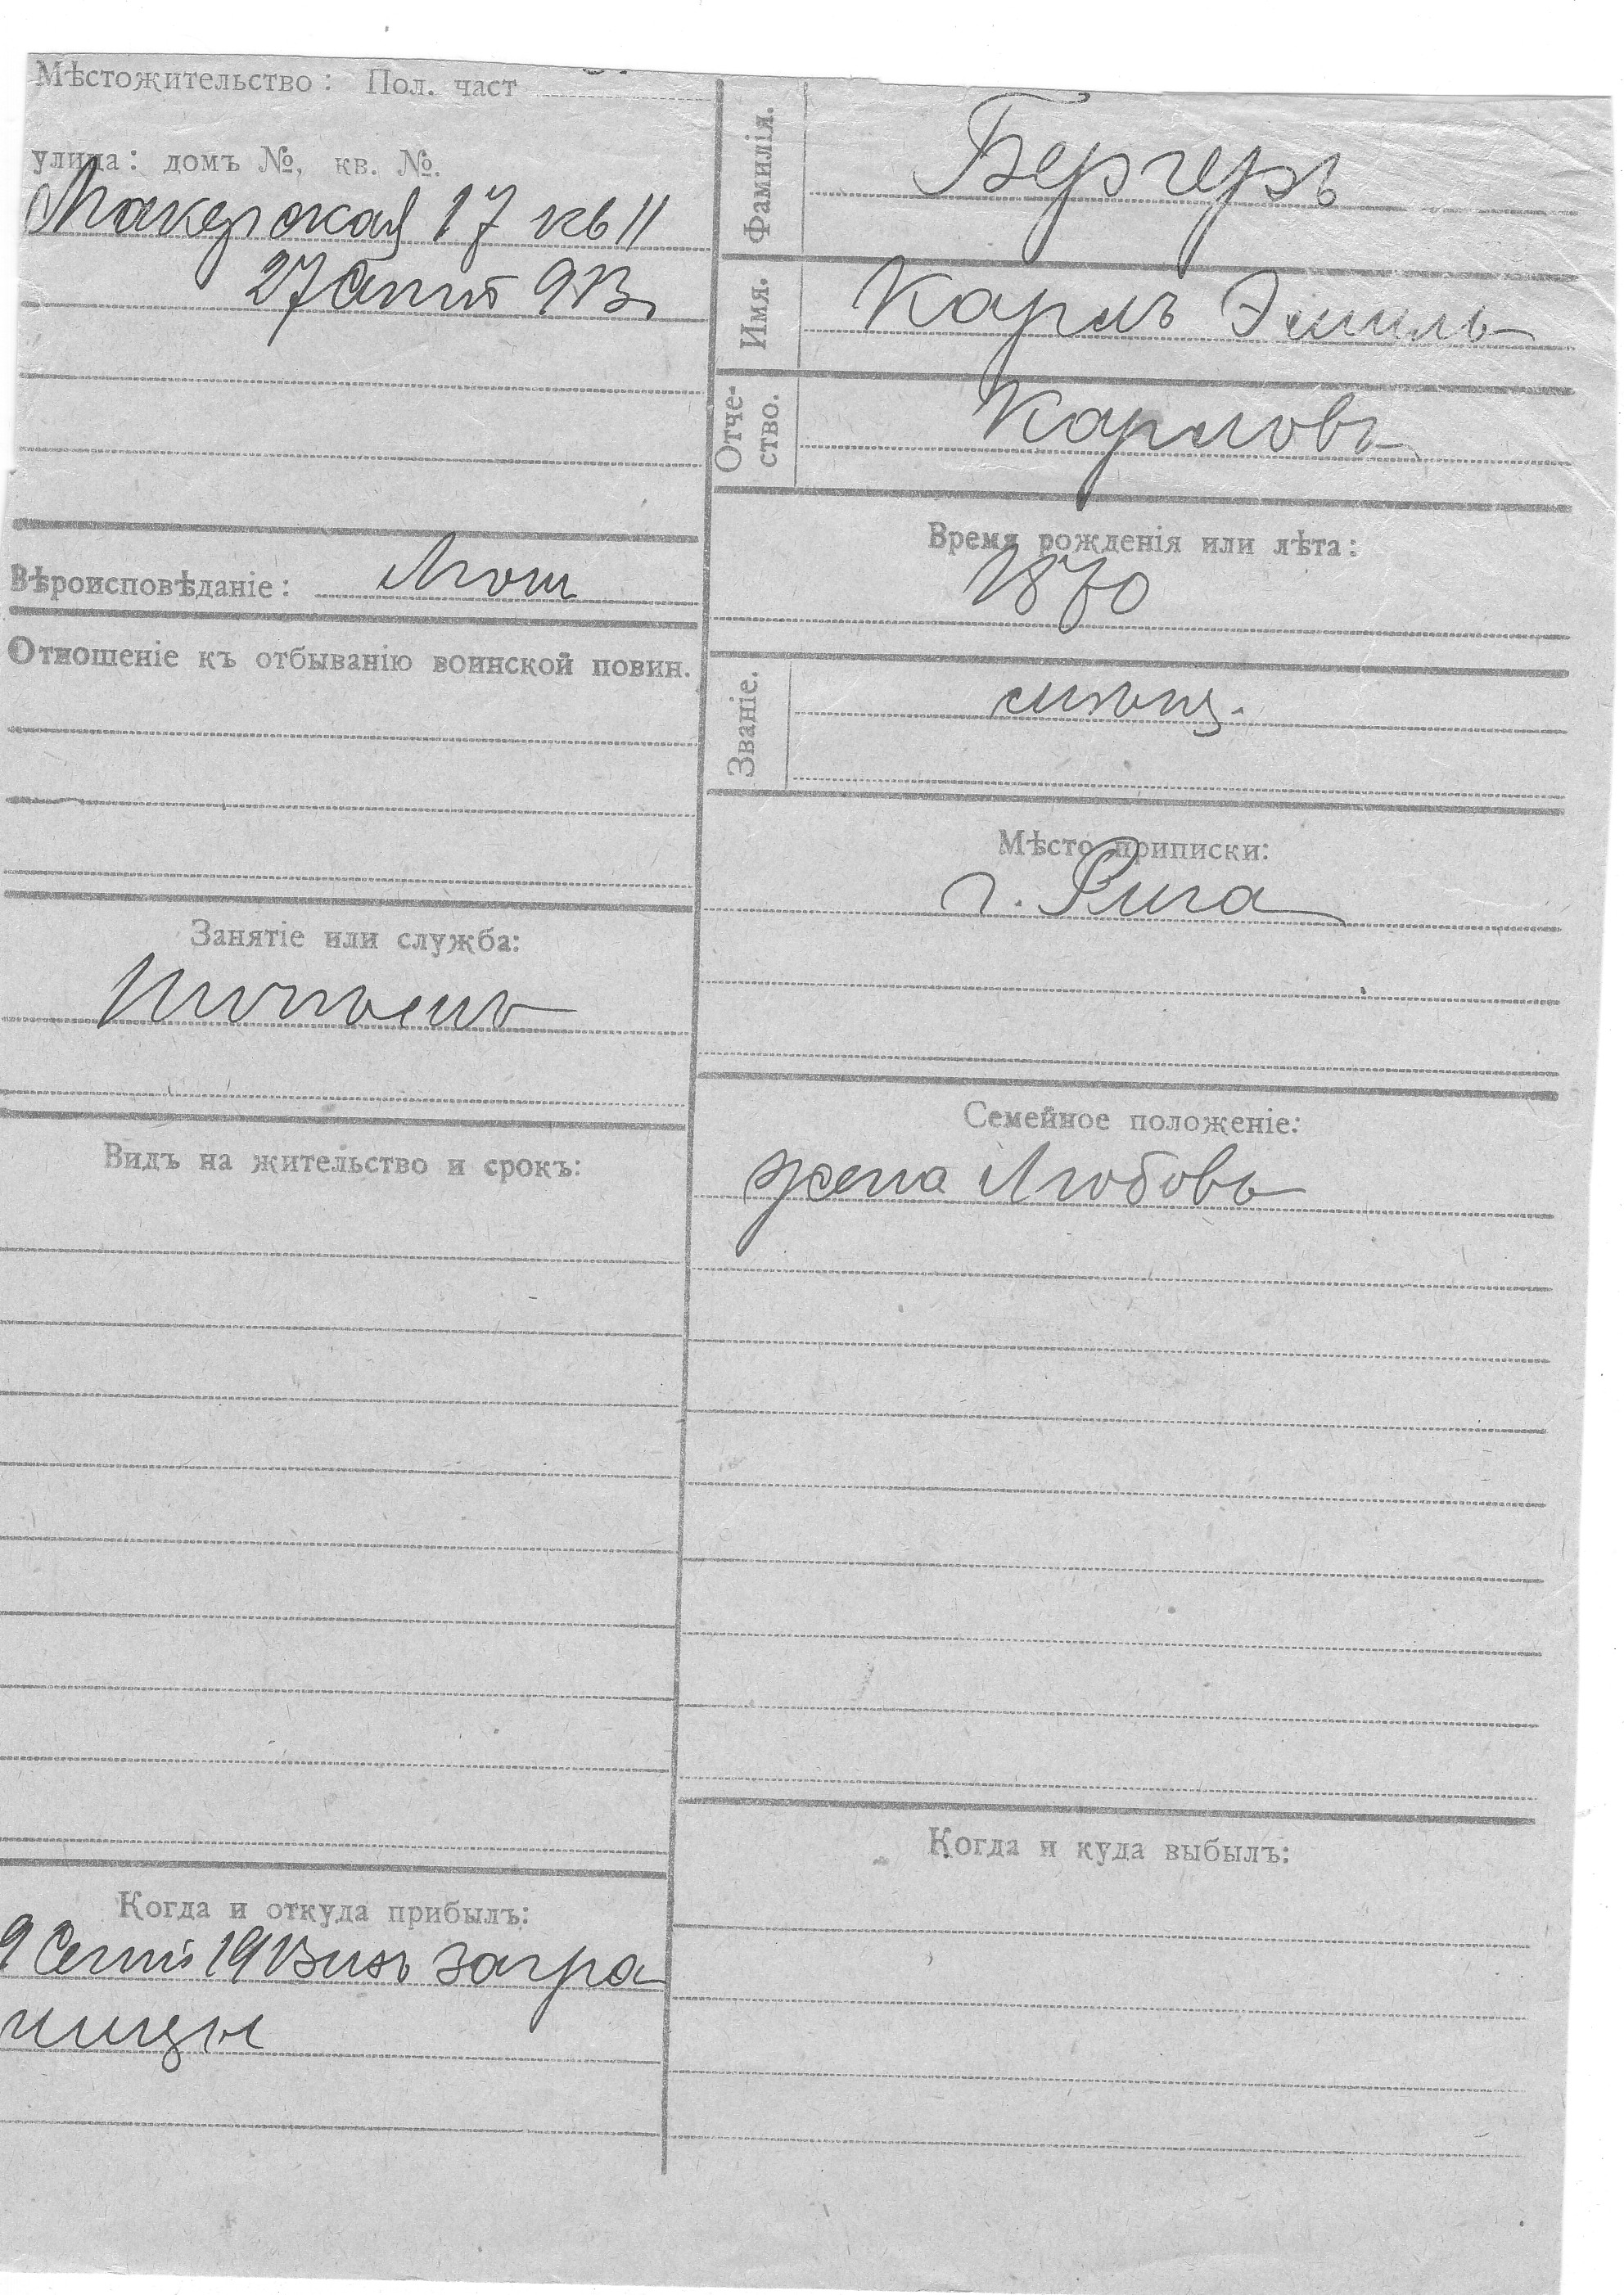 Мѣстожительство: Пол. част
улица: домъ №, кв. №.
17 кв 11
27 913
Вѣроисповѣданіе: Лют
Отношеніе къ отбыванію воинской повин.
Занятіе или служба:
Видъ на жительство и срокъ:
Когда и откуда прибылъ:
9 Сент 1913 изъ загра
ницы
Фамилія. Бергеръ
Имя. Карлъ Эмиль
Отче-
ство. Карловъ
Время рожденія или лѣта:
1870
Званіе.
Мѣсто приписки:
г. Рига
Семейное положеніе:
жена Любовь
Когда и куда выбылъ: